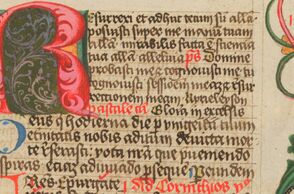 Resurrexi et adhuc tecum su alla
posuisti super me manu tuam
alla mirabilis facta e sciencia
tua alla allelulia ps Domine
probasti me et cognouisti me tu
cognouisti sessioem mea et resur
rectionem meam kyrieleyson
Gloria in excelsis
eus q hodierna die p unigenitu tuu
eternitatis nobis aditum deuicta mor
te reserasti vota nra que pueniendo
spiras ecia adiuuado psequere P eundem
res Expurgate ad Corinthios